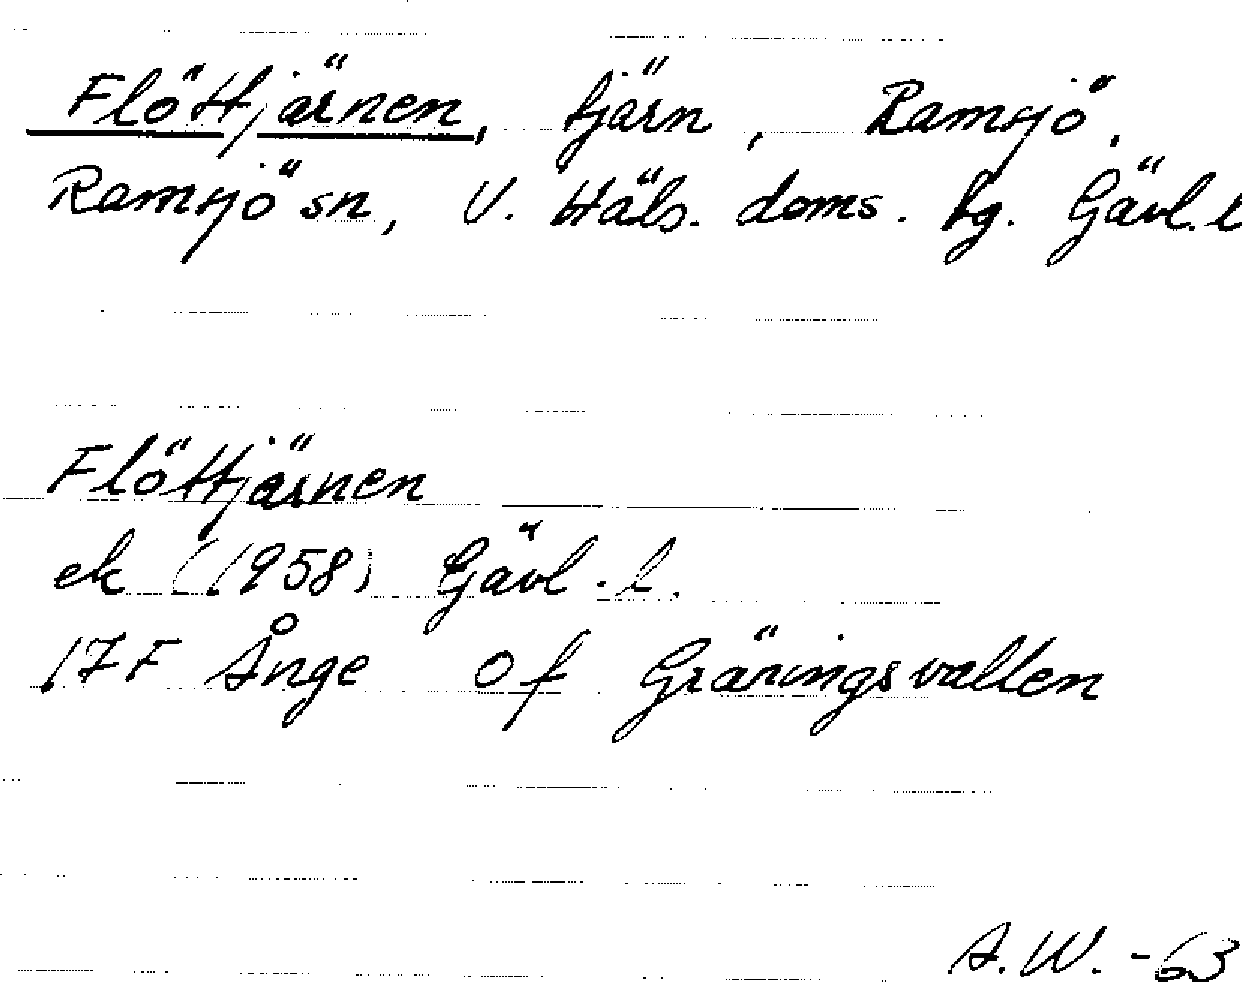 Flöttjärnen, tjärn, Ramsjö,
Ramsjö sn, V. Häls. doms. tg. Gävl. l
Flöttjärnen
ek (1958) Gävl. l.
17F Ånge Of Gräningsvallen
A.W. -63